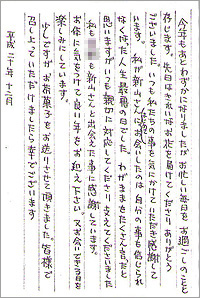 今年も あとわずかになりましたがお忙しい毎日をお過ごしのことと
存じます。先日はきれいなお花を届けてくださりありがとう
ございました。いつも私たちの事を気にかけていただき感謝して
います。私が新山さんにお会いしたのは自分の事も信じられ
なくなった人生最悪の日でした。わがままをたくさん言ったと
思いますがいつも親切に対応してくださり支えてくださいました
私も も新山さんと出会えた事に感謝しています。
お体に気をつけて良い年をお迎え下さい。又お会いできる日を
楽しみにしています。
少しですがお茶菓子をお送りさせて頂きました。皆様で
召し上っていただけましたら幸でございます。
平成二十年 十二月